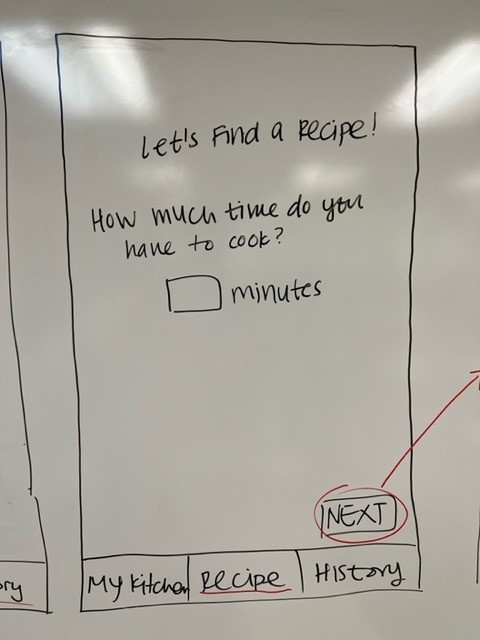 Let's Find a Recipe!
How much time do you
have to cook?
minutes
NEXT
My Kitchen Recipe History
ory